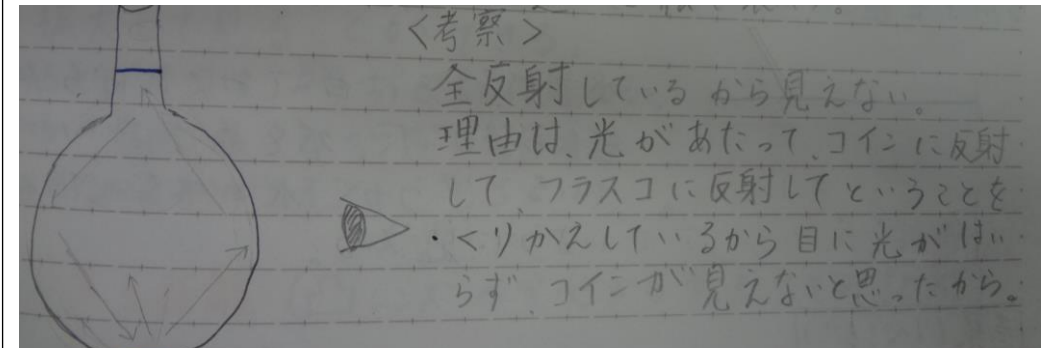 <考察>
全反射しているから見えない。
理由は、光があたって、コインに反射
して、フラスコに反射してということを
・くりかえしているから目に光がはい
らず、コインが見えないと思ったから。